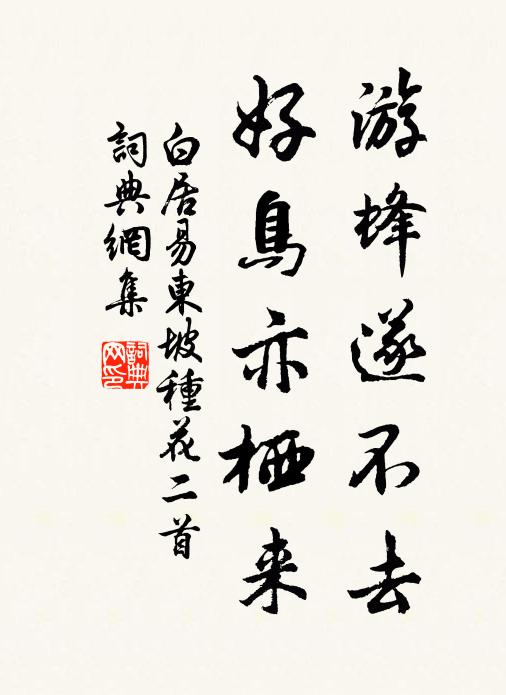 游蜂遂不去
好鳥亦栖来
白居易東坡種花二首
詞典網集
詞典网印